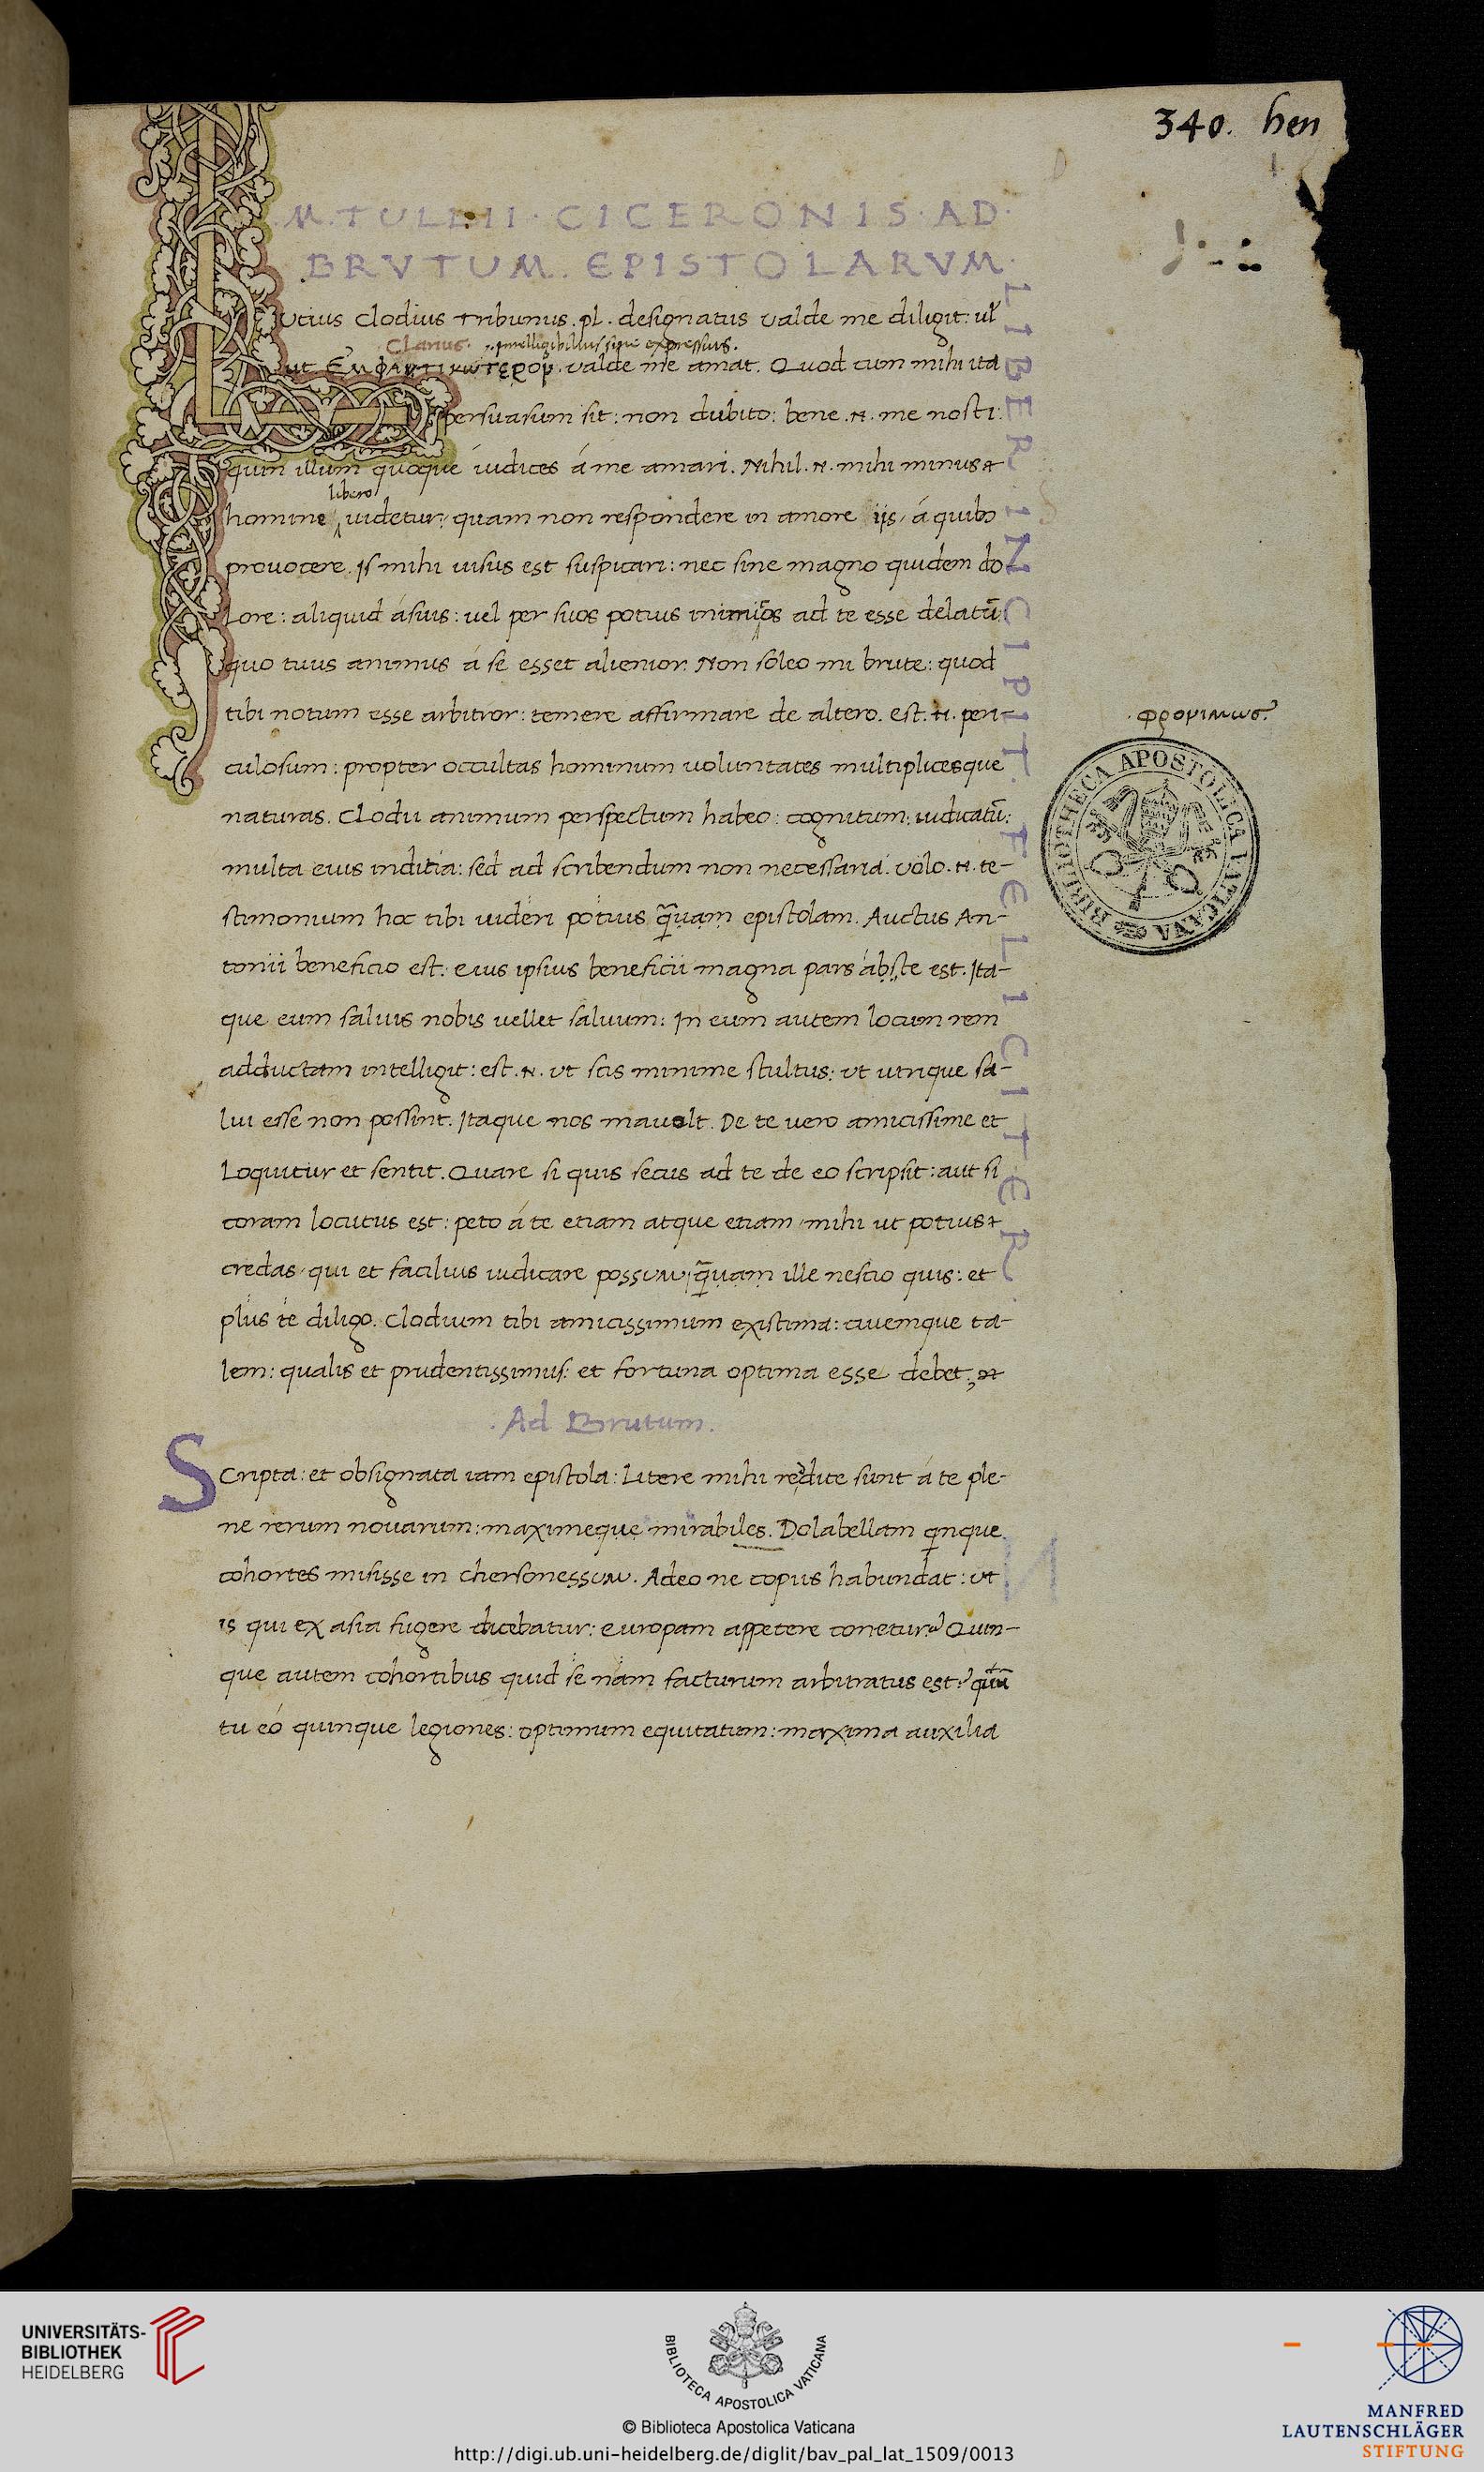 340. hen
M. TULLII · CICERONIS · AD ·
BRVTUM. EPISTOLARVM ·
LIBER · INCIPIT · FELICITER ·
Lutius Clodius tribunus . pl . designatus valde me diligit: ul'
Clarius. intelligibilius siue expressius.
ut Εμφαντικωτερον. valde me amat. Quod cum mihi ita
persuasum sit: non dubito: bene .n. me nosti:
quin illum quoque iudices á me amari. Nihil .n. mihi minus
libero
homine uidetur: quam non respondere in amore iis, á quibus
prouocere. Is mihi uisus est suspicari: nec sine magno quidem do
lore: aliquid ásuis: uel per suos potius inimicos ad te esse delatū
quo tuus animus á se esset alienior. Non soleo mi brute: quod
tibi notum esse arbitror: temere affirmare de altero. est .n. peri-
φρονιμωσ.
culosum: propter occultas hominum uoluntates multiplicesque
naturas. Clodii animum perspectum habeo: cognitum: iudicatū:
multa eius inditia: sed ad scribendum non necessaria. volo .n. te-
stimonium hoc tibi uideri potius quam epistolam. Auctus An-
tonii beneficio est: eius ipsius beneficii magna pars ábste est. Ita-
que eum saluis nobis uellet saluum: In eum autem locum rem
adductam intelligit: est .n. ut scis minime stultus: ut utrique sa-
lui esse non possint. Itaque nos mauolt. De te uero amicissime et
loquitur et sentit. Quare si quis secus ad te de eo scripsit: aut si
coram locutus est: peto á te etiam atque etiam, mihi ut potius
credas, qui et facilius iudicare possum, quam ille nescio quis: et
plus te diligo. Clodium tibi amicissimum existima: ciuemque ta-
lem: qualis et prudentissimus: et fortuna optima esse debet;
. Ad Brutum.
Scripta: et obsignata iam epistola: Litere mihi reddite sunt á te ple-
ne rerum nouarum: maximeque mirabiles. Dolabellam qinque
cohortes misisse in chersonessum. Adeo ne copiis habundat: ut
is qui ex asia fugere dicebatur: europam appetere conetur? Quin-
que autem cohortibus quid se nam facturum arbitratus est? quū
tu eó quinque legiones: optimum equitatum: maxima auxilia
BIBLIOTHECA APOSTOLICA VATICANA
UNIVERSITÄTS-
BIBLIOTHEK
HEIDELBERG
BIBLIOTECA APOSTOLICA VATICANA
© Biblioteca Apostolica Vaticana
http://digi.ub.uni-heidelberg.de/diglit/bav_pal_lat_1509/0013
MANFRED
LAUTENSCHLÄGER
STIFTUNG